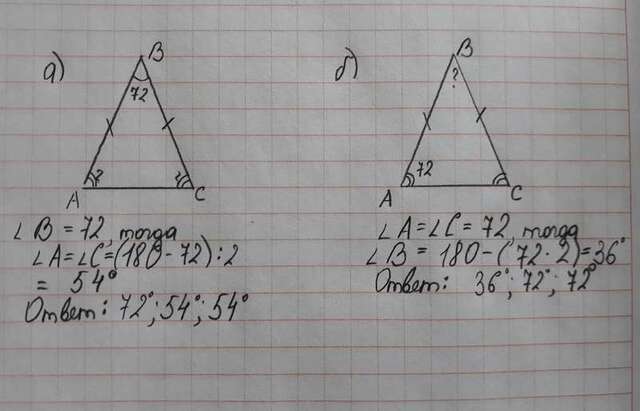 а)
B
72
?
?
A
C
∠ B = 72, тогда
∠A=∠C=(180-72):2
= 54°
Ответ: 72°; 54°; 54°
б)
B
?
72
A
C
∠A=∠C= 72, тогда
∠B = 180-(72·2)=36°
Ответ: 36°; 72°; 72°